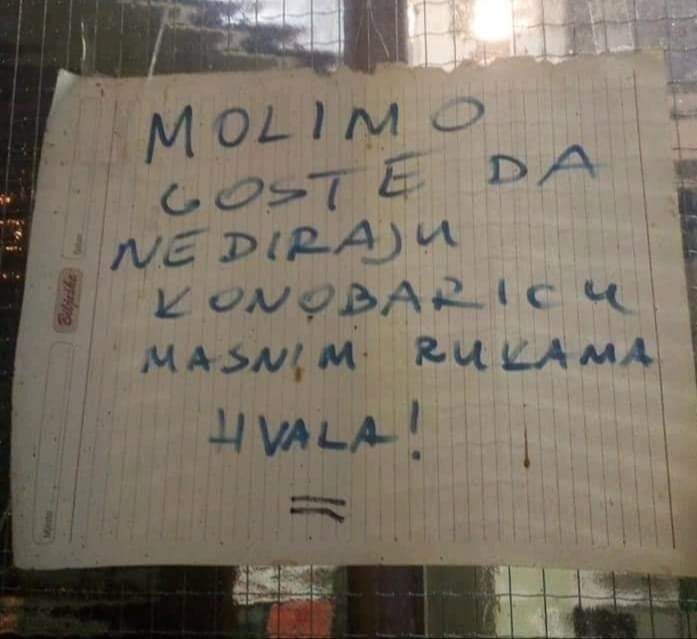 MOLIMO
GOSTE DA
NEDIRAJU
KONOBARICU
MASNIM RUKAMA
HVALA!
Bilješke